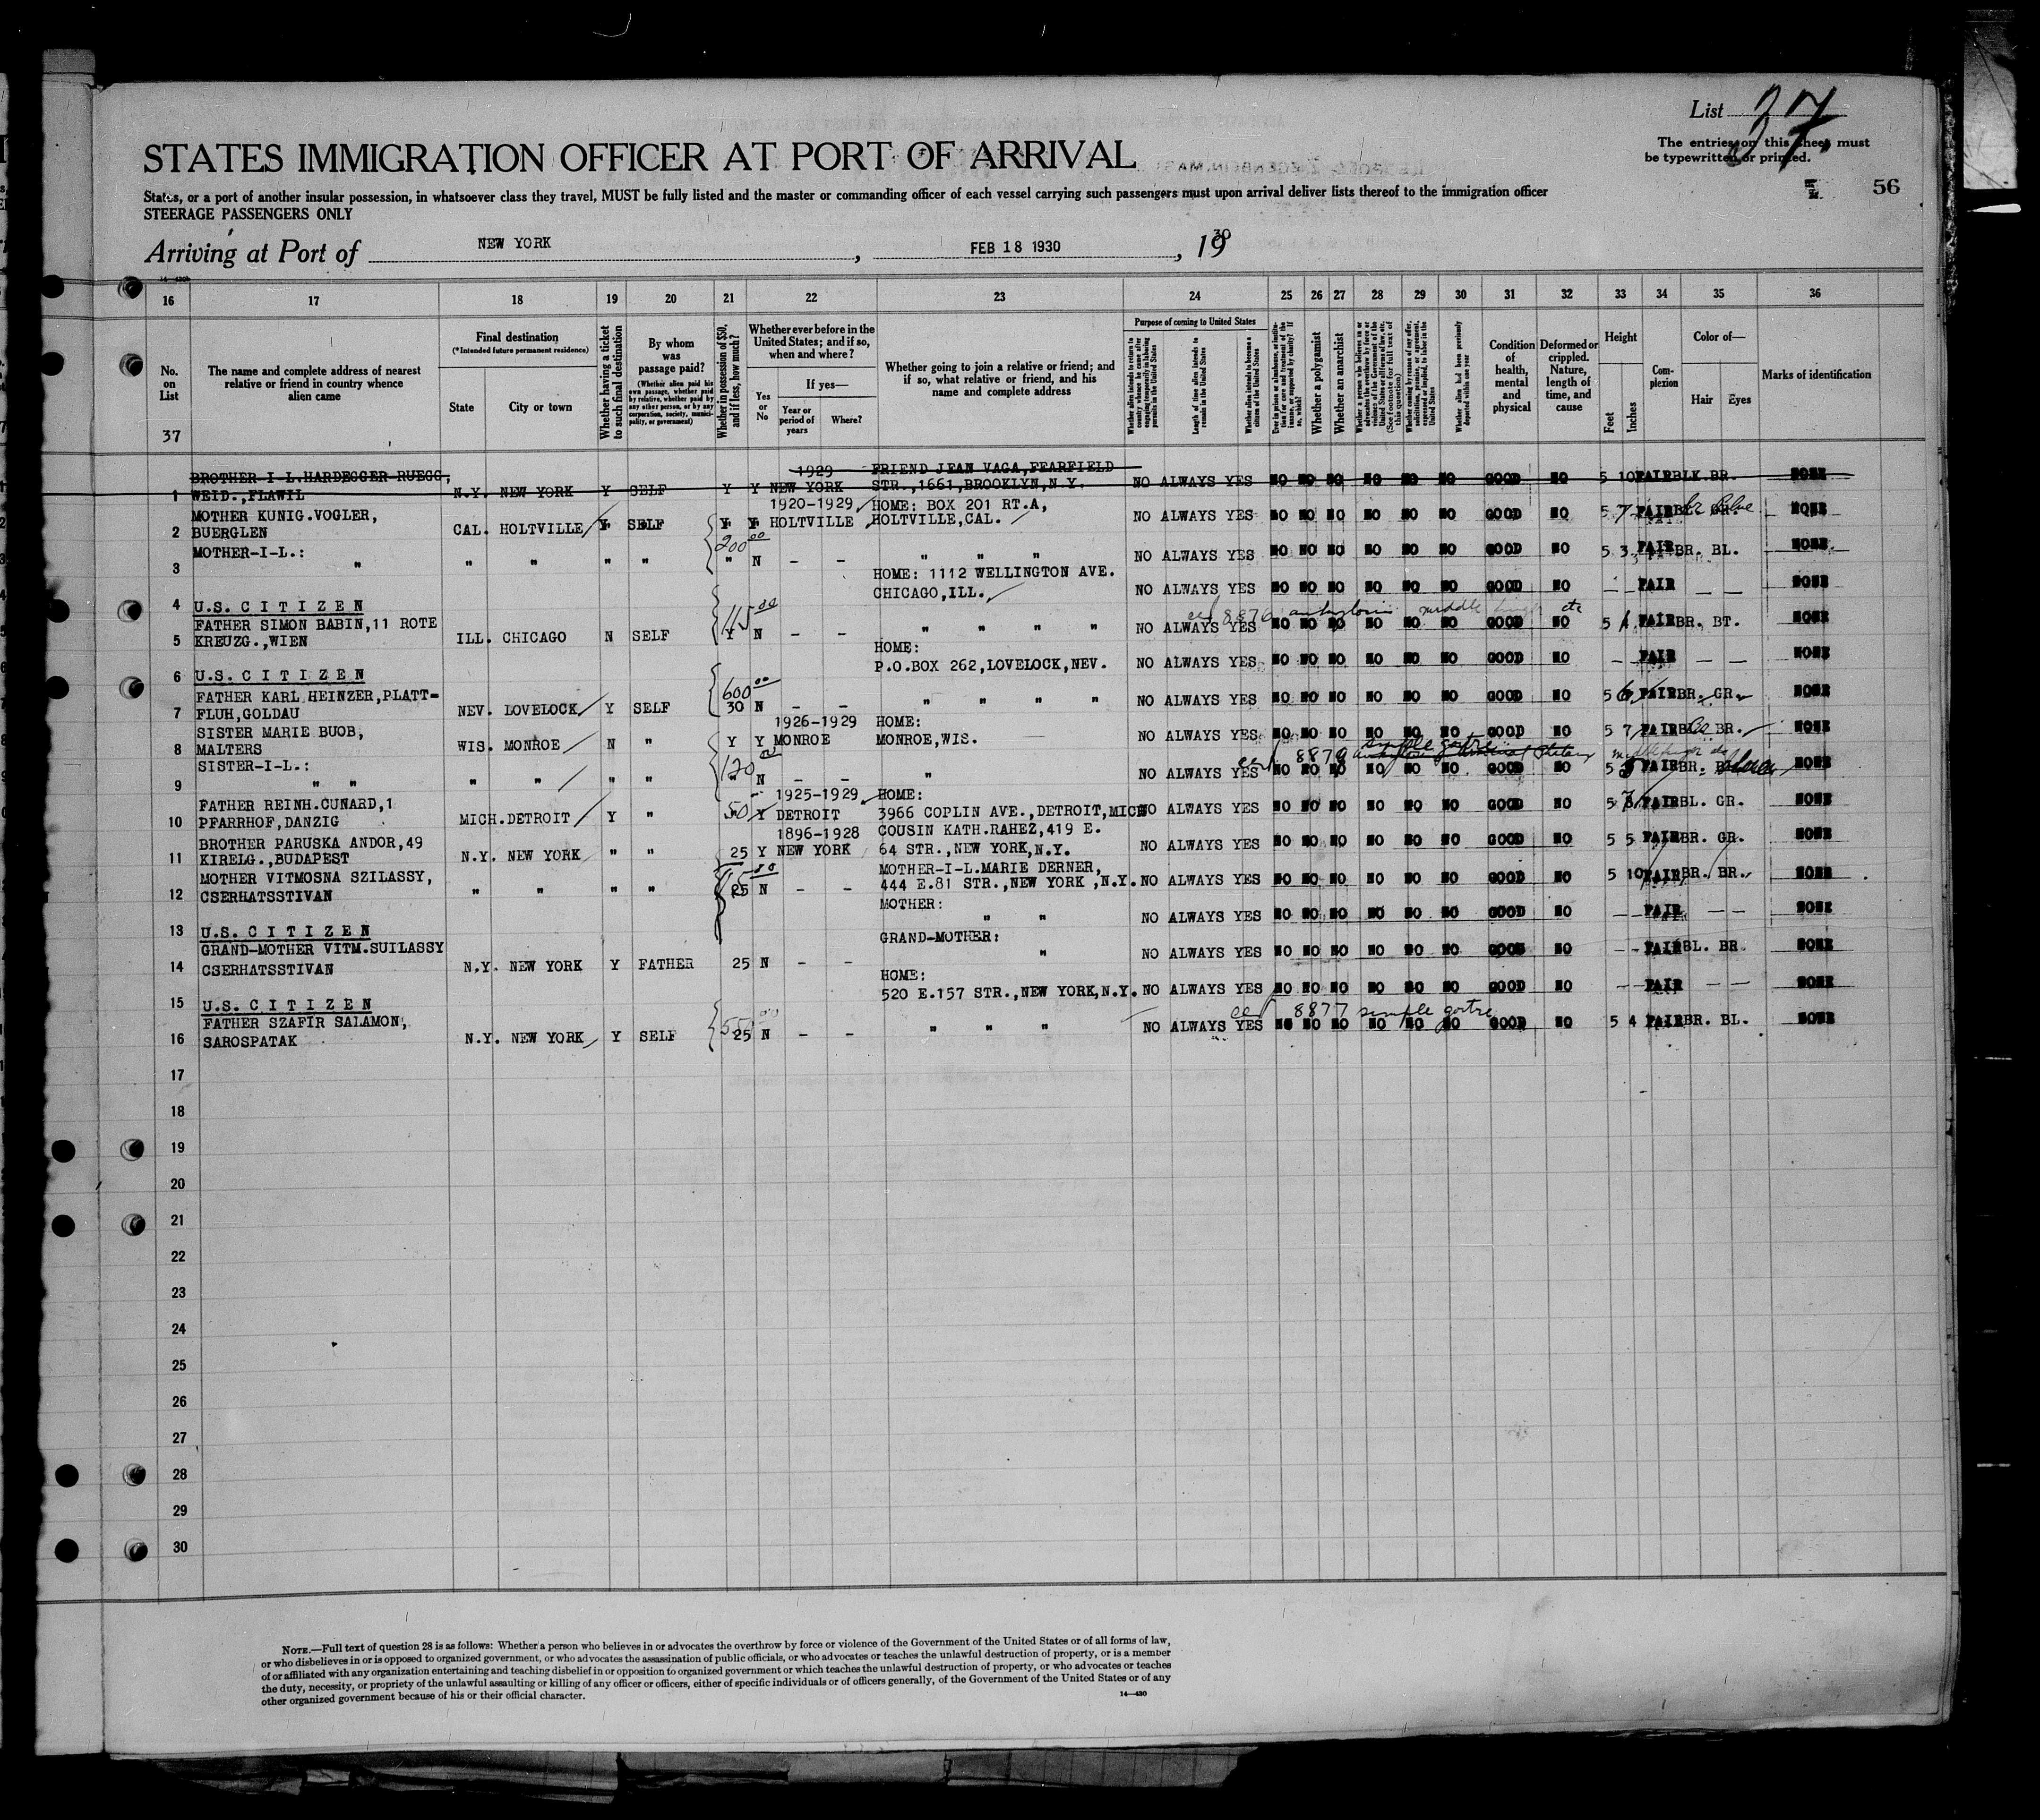 List 37
The entries on this sheet must
be typewritten or printed.
STATES IMMIGRATION OFFICER AT PORT OF ARRIVAL
56
States, or a port of another insular possession, in whatsoever class they travel, MUST be fully listed and the master or commanding officer of each vessel carrying such passengers must upon arrival deliver lists thereof to the immigration officer
STEERAGE PASSENGERS ONLY
Arriving at Port of NEW YORK, FEB 18 1930, 1930
16 17 18 19 20 21 22 23 24 25 26 27 28 29 30 31 32 33 34 35 36
No. on List
37
The name and complete address of nearest
relative or friend in country whence
alien came
Final destination
(*Intended future permanent residence)
State
City or town
Whether having a ticket
to such final destination
By whom
was
passage paid?
(Whether alien paid his
own passage, whether paid
by relative, whether paid by
any other person, or by any
corporation, society, munici-
pality, or government)
Whether in possession of $50,
and if less, how much?
Whether ever before in the
United States; and if so,
when and where?
Yes
or
No
If yes—
Year or
period of
years
Where?
Whether going to join a relative or friend; and
if so, what relative or friend, and his
name and complete address
Purpose of coming to United States
Whether alien intends to return to
country whence he came after
engaging temporarily in laboring
pursuits in the United States
Length of time alien intends to
remain in the United States
Whether alien intends to become a
citizen of the United States
Whether a polygamist
Whether an anarchist
Whether alien had been previously
deported within one year
Condition
of
health,
mental
and
physical
Deformed or
crippled.
Nature,
length of
time, and
cause
Height
Feet
Inches
Com-
plexion
Color of—
Hair
Eyes
Marks of identification
1 BROTHER-I-L.HARDEGGER-RUEGG, 1929 FRIEND JEAN VAGA,FEARFIELD
WEID.,FLAWIL N.Y. NEW YORK Y SELF Y Y NEW YORK STR.,1661,BROOKLYN,N.Y. NO ALWAYS YES NO NO NO NO NO NO GOOD NO 5 10 FAIR BLK.BR. NONE
2 MOTHER KUNIG.VOGLER, 1920-1929 HOME: BOX 201 RT.A,
BUERGLEN CAL. HOLTVILLE Y SELF Y Y HOLTVILLE HOLTVILLE,CAL. NO ALWAYS YES NO NO NO NO NO NO GOOD NO 5 7 FAIR Blue NONE
200 00
3 MOTHER-I-L.:
" " " " " " N - - " " " NO ALWAYS YES NO NO NO NO NO NO GOOD NO 5 3 FAIR BR. BL. NONE
HOME: 1112 WELLINGTON AVE.
4 U.S. C I T I Z E N CHICAGO,ILL. NO ALWAYS YES NO NO NO NO NO NO GOOD NO — — FAIR — — NONE
115 00
8876 middle
5 FATHER SIMON BABIN,11 ROTE
KREUZG.,WIEN ILL. CHICAGO N SELF Y N - - " " " " NO ALWAYS YES NO NO NO NO NO NO GOOD NO 5 FAIR BR. BT. NONE
HOME:
6 U.S. C I T I Z E N P.O.BOX 262,LOVELOCK,NEV. NO ALWAYS YES NO NO NO NO NO NO GOOD NO — — FAIR — — NONE
600 00
7 FATHER KARL HEINZER,PLATT-
FLUH,GOLDAU NEV. LOVELOCK Y SELF 30 N - - " " " " NO ALWAYS YES NO NO NO NO NO NO GOOD NO 5 6 FAIR BR. GR. NONE
8 SISTER MARIE BUOB, 1926-1929 HOME:
MALTERS WIS. MONROE N " Y Y MONROE MONROE,WIS. NO ALWAYS YES NO NO NO NO NO NO GOOD NO 5 7 FAIR BR. NONE
120 00
8879 simple goitre
9 SISTER-I-L.:
" " " " " " " N - - " NO ALWAYS YES NO NO NO NO NO NO GOOD NO 5 FAIR BR. NONE
10 FATHER REINH.CUNARD,1 1925-1929 HOME:
PFARRHOF,DANZIG MICH. DETROIT Y " 50 Y DETROIT 3966 COPLIN AVE.,DETROIT,MICH NO ALWAYS YES NO NO NO NO NO NO GOOD NO 5 FAIR BL. GR. NONE
11 BROTHER PARUSKA ANDOR,49 1896-1928 COUSIN KATH.RAHEZ,419 E.
KIRELG.,BUDAPEST N.Y. NEW YORK " " 25 Y NEW YORK 64 STR.,NEW YORK,N.Y. NO ALWAYS YES NO NO NO NO NO NO GOOD NO 5 5 FAIR BR. GR. NONE
12 MOTHER VITMOSNA SZILASSY, MOTHER-I-L.MARIE DERNER,
CSERHATSSTIVAN " " " " 25 N - - 444 E.81 STR.,NEW YORK,N.Y. NO ALWAYS YES NO NO NO NO NO NO GOOD NO 5 10 FAIR BR. BR. NONE
MOTHER:
13 U.S. C I T I Z E N " " NO ALWAYS YES NO NO NO NO NO NO GOOD NO — — FAIR — — NONE
14 GRAND-MOTHER VITM.SUILASSY GRAND-MOTHER:
CSERHATSSTIVAN N.Y. NEW YORK Y FATHER 25 N - - " NO ALWAYS YES NO NO NO NO NO NO GOOD NO — — FAIR BL. BR. NONE
HOME:
15 U.S. C I T I Z E N 520 E.157 STR.,NEW YORK,N.Y. NO ALWAYS YES NO NO NO NO NO NO GOOD NO — — FAIR — — NONE
8877 simple goitre
16 FATHER SZAFIR SALAMON,
SAROSPATAK N.Y. NEW YORK Y SELF 25 N - - " " " NO ALWAYS YES NO NO NO NO NO NO GOOD NO 5 4 FAIR BR. BL. NONE
17
18
19
20
21
22
23
24
25
26
27
28
29
30
NOTE.—Full text of question 28 is as follows: Whether a person who believes in or advocates the overthrow by force or violence of the Government of the United States or of all forms of law,
or who disbelieves in or is opposed to organized government, or who advocates the assassination of public officials, or who advocates or teaches the unlawful destruction of property, or is a member
of or affiliated with any organization entertaining and teaching disbelief in or opposition to organized government or which teaches the unlawful destruction of property, or who advocates or teaches
the duty, necessity, or propriety of the unlawful assaulting or killing of any officer or officers, either of specific individuals or of officers generally, of the Government of the United States or of any
other organized government because of his or their official character.
14—430